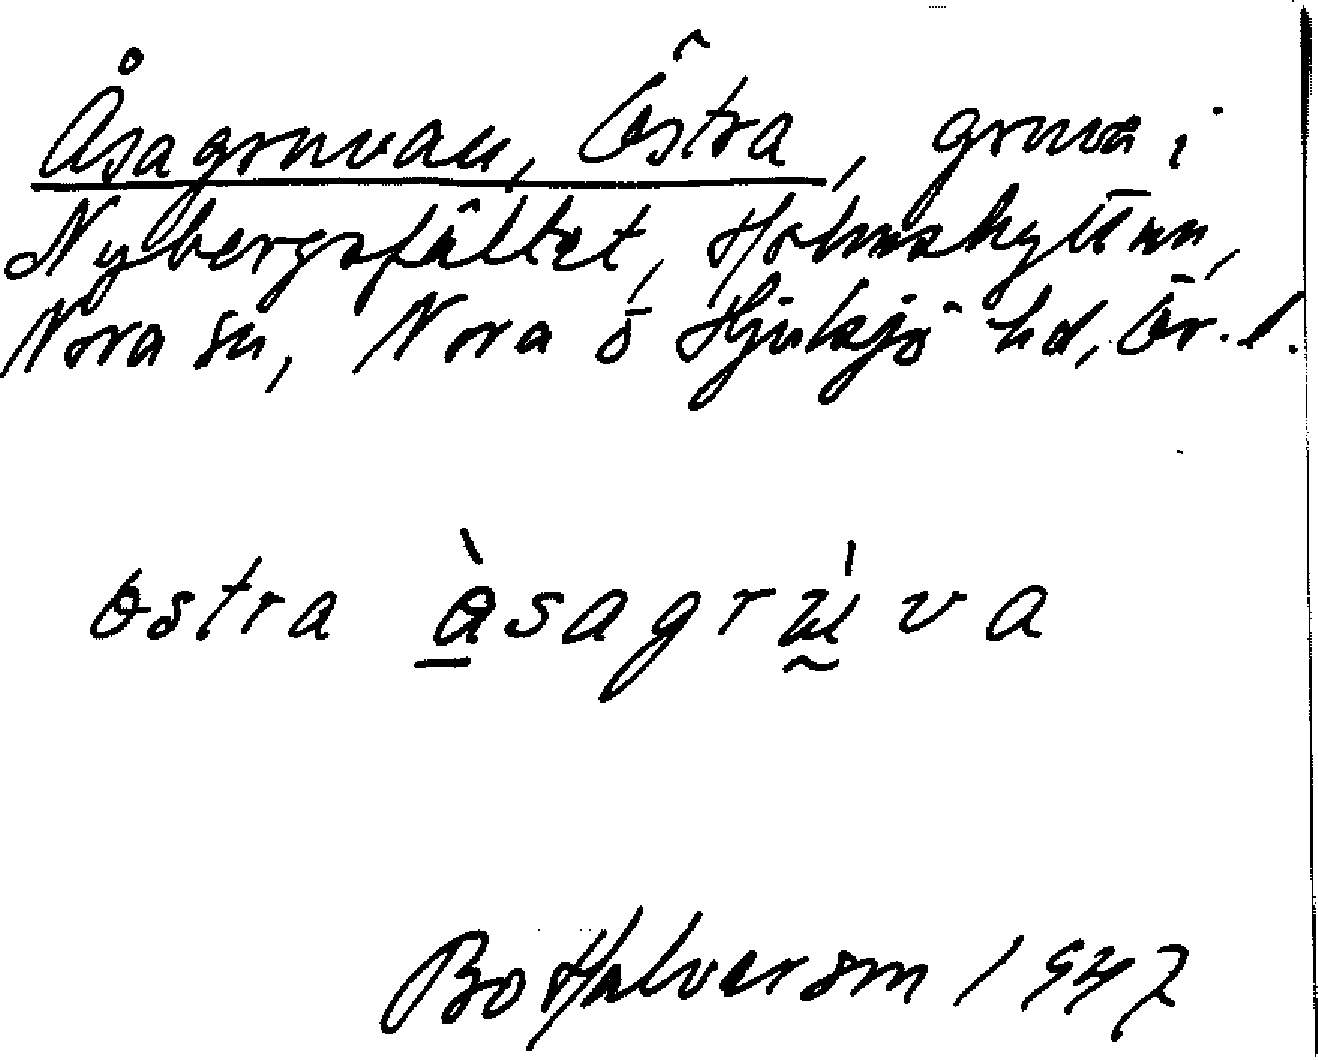 Åsagruvan, Östra, gruva i
Nybergsfältet, Holmshyttan,
Nora sn, Nora o Hjulsjö hd, Ör. l.
östra åsagruva
Bo Halvarson 1947